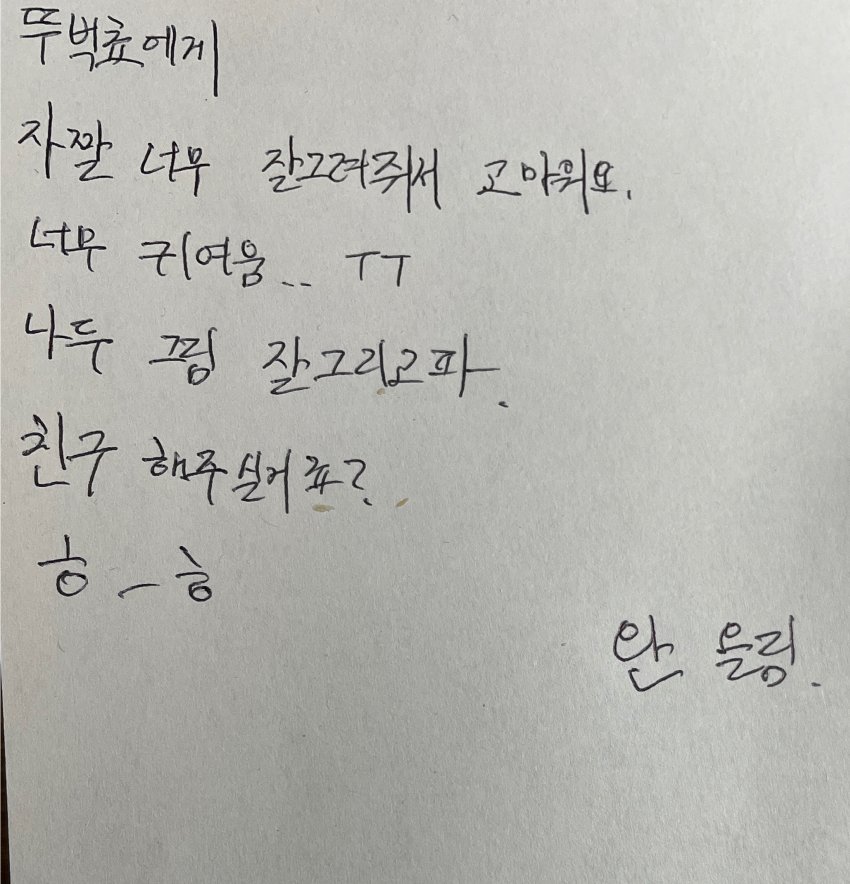 뚜벅쵸에게
자짤 너무 잘그려줘서 고마워요.
너무 귀여움.. ㅜㅜ
나두 그림 잘그리고파.
친구 해주실어죠?
ㅎ_ㅎ
안 올림.